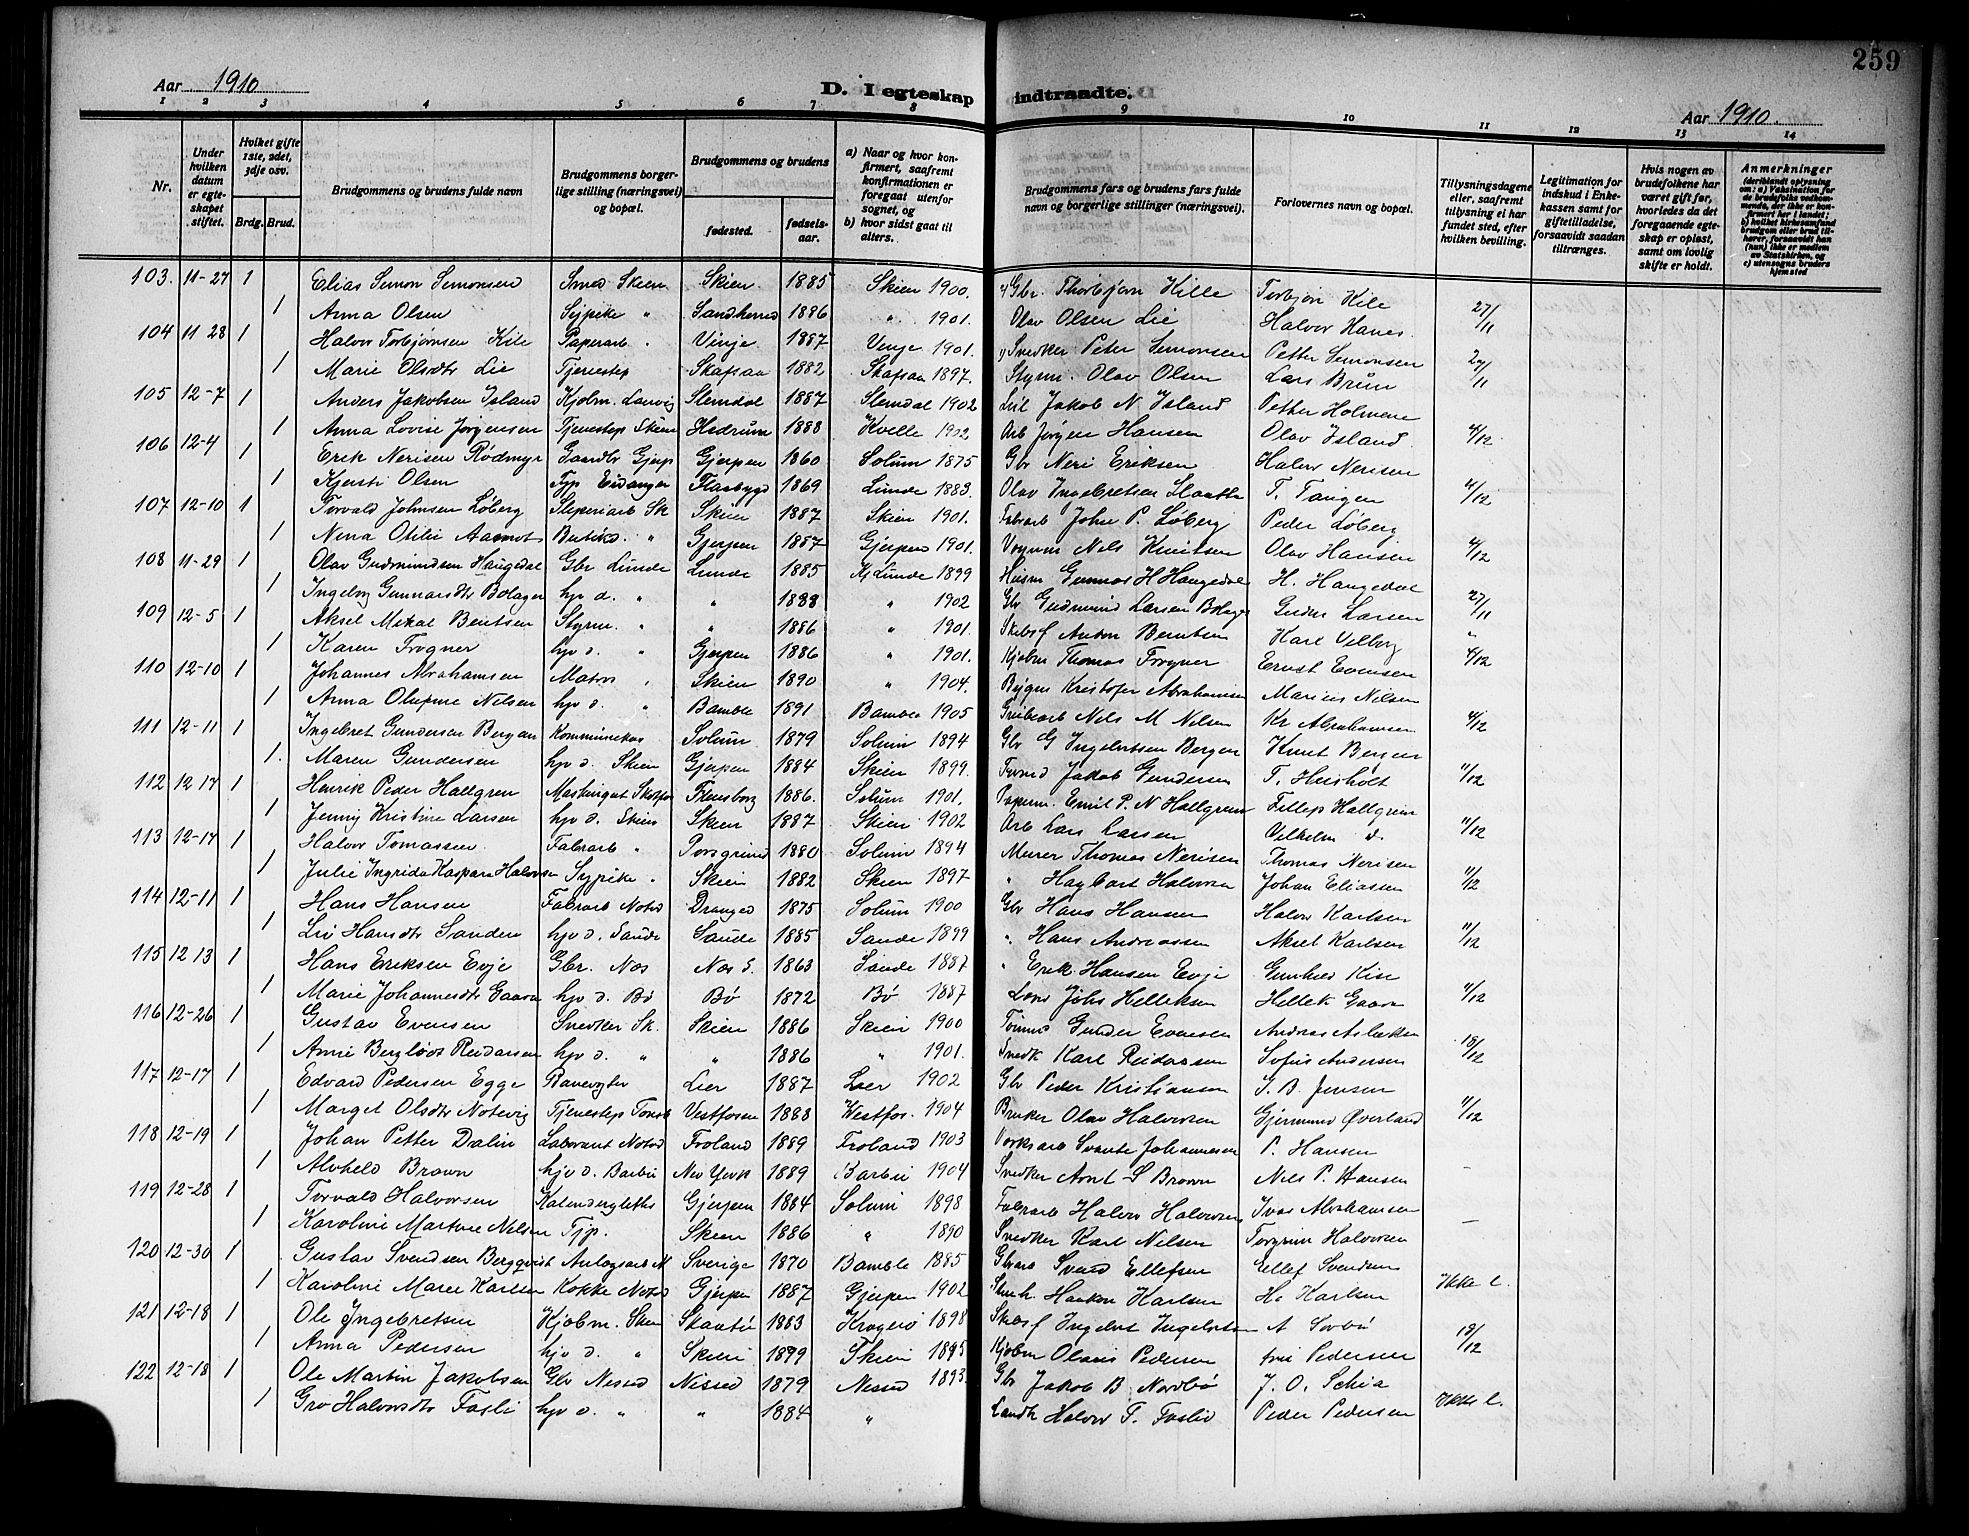 259
Aar 1910
D. I egteskap indtraadte.
Aar 1910.
1 2 3 4 5 6 7 8 9 10 11 12 13 14
Nr.
Under hvilken datum er egteskapet stiftet.
Hvilket gifte 1ste, 2det, 3dje osv.
Brdg. Brud.
Brudgommens og brudens fulde navn
Brudgommens borgerlige stilling (næringsvei) og bopæl.
Brudgommens og brudens
fødested.
fødselsaar.
a) Naar og hvor konfirmert, saafremt konfirmationen er foregaat utenfor sognet, og
b) hvor sidst gaat til alters.
Brudgommens fars og brudens fars fulde navn og borgerlige stillinger (næringsvei).
Forlovernes navn og bopæl.
Tillysningsdagene eller, saafremt tillysning ei har fundet sted, efter hvilken bevilling.
Legitimation for indskud i Enkekassen samt for giftetilladelse, forsaavidt saadan tiltrænges.
Hvis nogen av brudefolkene har været gift før, hvorledes da det foregaaende egteskap er opløst, samt om lovlig skifte er holdt.
Anmerkninger
(deriblandt oplysning om: a) Vaksination for de brudefolks vedkommende, der ikke er konfirmert her i landet; b) hvilket kirkesamfund brudgom eller brud tilhører, forsaavidt han (hun) ikke er medlem av Statskirken, og c) utensogns bruders hjemsted
103. 11-27 1 Elias Simon Simonsen Smed Skien Skien 1885 Skien 1900. Gbr. Thorbjørn Kille Torbjørn Kile 27/11
1 Anna Olsen Sypike " Sandherred 1886 " 1901. Olav Olsen Lie Halvor Hanes
104 11 28 1 Halvor Torbjørnsen Kile Paperarb " Vinje 1887 Vinje 1901. Snedker Peter Simonsen Petter Simonsen 27/11
1 Marie Olsdtr Lie Tjenestep Skafsaa 1882 Skafsaa 1897. Styrm. Olav Olsen Lars Bruun
105 12-7 1 Anders Jakobsen Island Kjøbm. Larvig Slemdal 1887 Slemdal 1902 Jakob N. Island Petter Holmene
1 Anna Lovise Jørgensen Tjenestep Skien Hedrum 1888 Kvelle 1902 Arb Jørgen Hansen Olav Island 4/12
106 12-4 1 Erik Nerisen Rødmyr Gaardbr Gjerp Gjerpen 1860 Solum 1875 Gbr Neri Eriksen Halvor Nerisen
1 Kjersti Olsen Tjp Eidanger Flaabygd 1869 Lunde 1883. Olav Ingebretsen T. Tangen 4/12
107 12-10 1 Torvald Johnsen Løberg Sliperiarb Sk Skien 1887 Skien 1901. Fabrarb John P. Løberg Peder Løberg
1 Nina Otilie Aamot Butikd. " Gjerpen 1887 Gjerpen 1901. Vognm Nels Knutsen Olav Hansen 4/12
108 11-29 1 Olav Gudmundsen Haugedal Gbr Lunde Lunde 1885 Kj Lunde 1899 Husm Gunnar H Haugedal H. Haugedal
1 Ingeborg Gunnarsdtr Bolager hjv d. " " 1888 " 1902 Gbr Gudmund Larsen Bolager Larsen 27/11
109 12-5 1 Aksel Mikal Bentsen Styrm. " " 1886 " 1901. Skibsf Anton Berntsen Karl Velberg "
1 Karen Frogner hjv d. " Gjerpen 1886 " 1901. Kjøbm Thomas Frogner Ernst Evensen 4/12
110 12-10 1 Johannes Abrahamsen Matros " Skien 1890 " 1904. Bygm Kristofer Abrahamsen Marius Nilsen
1 Anna Olufine Nelsen hjv d. " Bamble 1891 Bamble 1905 Grubearb Nels M Nelsen Kr Abrahamsen 4/12
111 12-11 1 Ingebret Gundersen Bergan Kommunekas Solum 1879 Solum 1894 Gbr G Ingebretsen Bergen Knut Bergan
1. Maren Gundersen hjv d. Skien Gjerpen 1884 Skien 1899. Jakob Gundersen T. Huisholt 11/12
112 12 17 1 Henrik Peder Hallgren Maskingut Skotfos Flensborg 1886. Solum 1901. Paperm. Emil P. N Hallgren Fillip Hallgren
1 Jenny Kristine Larsen hjv d. Skien Skien 1887 Skien 1902 Arb Lars Larsen Vilhelm d. 11/12
113 12-17 1 Halvor Tomassen Fabrarb " Porsgrund 1880 Solum 1894 Murer Thomas Nerisen Thomas Nerisen
1 Julie Ingrida Kaspara Halvorsen Sypike " Skien 1882 Skien 1897 " Haybart Halvorsen Johan Eliassen 11/12
114 12-11 1 Hans Hansen Fabrarb Notod Drangedal 1875 Solum 1900 Gbr Hans Hansen Halvor Karlsen
1 Liv Hansdtr Sanden hjv d. Saude Saude 1885 Sande 1899 " Hans Andreassen Aksel Karlsen 11/12
115 12 13 1 Hans Eriksen Evje Gbr. Næs Næs S. 1863 Saude 1887 " Erik Hansen Evje Gunhild Kise
1 Marie Johannesdtr Gaara hjv d. Bø Bø 1872 Bø 1887 Johs Helleksen Hellek Gaara 11/12
116 12-26 1 Gustav Evensen Snedker Sk. Skien 1886 Skien 1900 Tømm Gunder Evensen Andreas Aslaksen
1 Anne Bergljot Reidarsen hjv d. " " 1886 " 1901. Snedk Karl Reidarsen Sofus Andersen 18/12
117 12-17 1 Edvard Pedersen Egge Banevogter Lier 1887 Lier 1902 Gbr Peder Kristiansen J. B. Jensen
1 Marget Olsdtr Notevig Tjenestep Tonsb Vestfossen 1888 Vestfos. 1904 Bruker Olav Halvorsen Gjermund Øverland 11/12
118 12-19 1 Johan Petter Dalin Laborant Notod Froland 1889 Froland 1903 Verksarb Svante Johannesen P. Hansen
1 Alvheld Brown hjv d. Barbu New York 1889 Barbu 1904 Snedker Arnt L Brown Nils P. Hansen –
119 12-28 1 Torvald Halvorsen Kalendergutt Gjerpen 1884 Solum 1898 Fabrarb Halvor Halvorsen Ivar Abrahamsen
1 Karoline Martine Nelsen Tjp. Skien 1886 " 1890 Snedker Karl Nilsen Torgrim Halvorsen –
120 12-30 1 Gustav Svendsen Bergqvist Anlægsarb N Sverige 1870 Bamble 1885 Gbr Svend Ellefsen Ellef Svendsen
1 Karoline Maree Karlsen Kokke Notod Gjerpen 1887 Gjerpen 1902 Haakon Karlsen H. Karlsen Ikke l.
121 12-18 1 Ole Ingebretsen Kjøbm. Skien Skaatø 1883 Kragerø 1898 Skibsf Ingebret Ingebretsen A Sørbø
1 Anna Pedersen hjv d. " Skien 1899 Skien 1895 Kjøbm Olaus Pedersen Pedersen 18/12
122 12-18 1 Ole Martin Jakobsen Gbr Nesed Nissed 1879 Nissed 1893. Gbr Jakob B. Nordbø J. O. Schia
1 Gro Halvorsdtr Fosli hjv d. " " 1884 " Landh Halvor T. Foslid Peder Pedersen Ikke l.